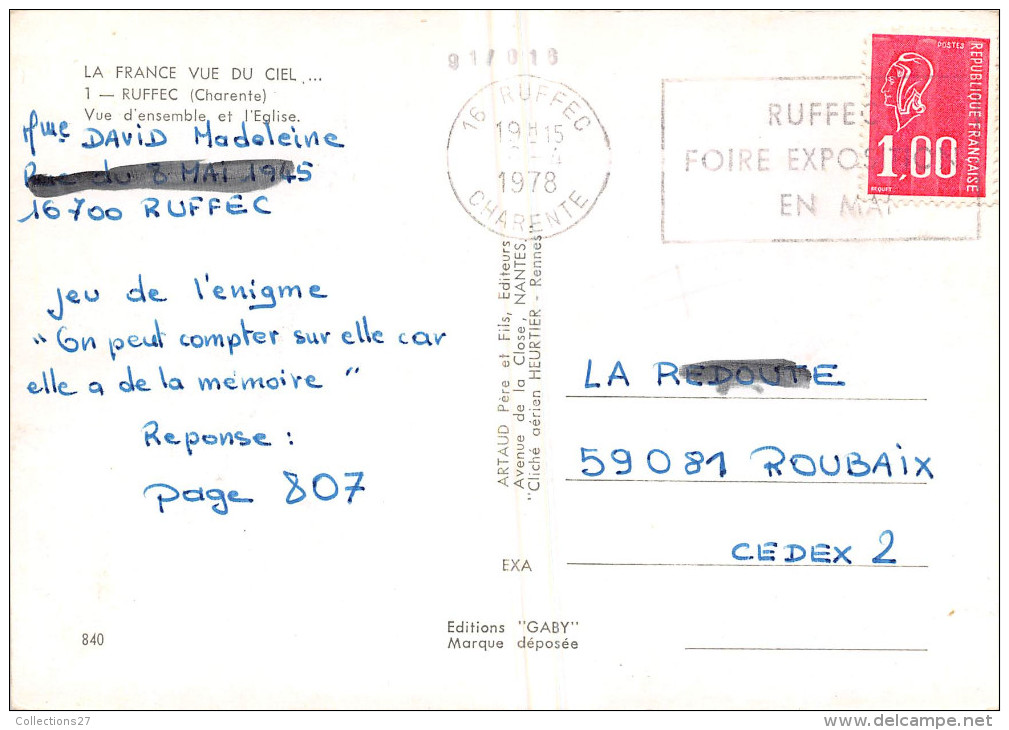 LA FRANCE VUE DU CIEL ...
1 — RUFFEC (Charente)
Vue d'ensemble et l'Eglise.
Mme DAVID Madeleine
Rue du 8 MAI 1945
16700 RUFFEC
jeu de l'enigme
"On peut compter sur elle car
elle a de la mémoire"
Reponse :
page 807
840
91/016
16 RUFFEC
19H15
1978
CHARENTE
ARTAUD Père et Fils, Editeurs
Avenue de la Close, NANTES.
"Cliché aérien HEURTIER - Rennes"
EXA
Editions "GABY"
Marque déposée
RUFFEC
FOIRE EXPOSITION
EN MAI
POSTES
REPUBLIQUE FRANÇAISE
1,00
BEQUET
LA REDOUTE
59081 ROUBAIX
CEDEX 2
Collections27
delcampe.net